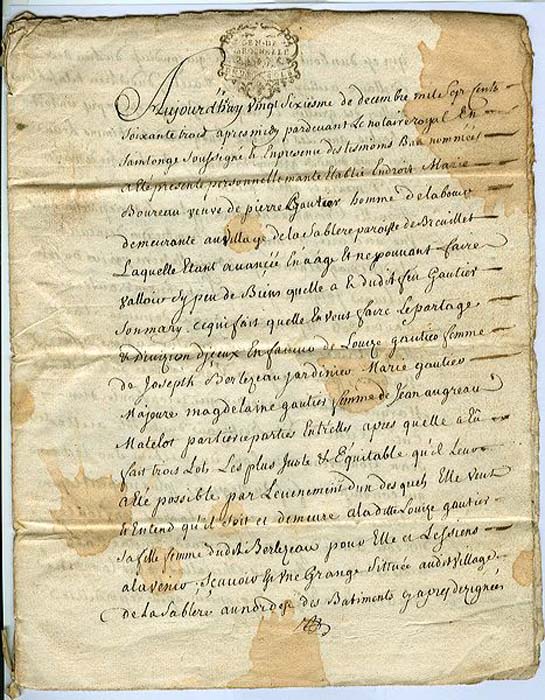 GEN. DE
LA ROCHELLE
Aujourd'huy vingt Sixiesme de decembre mil Sept Cents
Soixante trois apres midy pardevant Le notaire royal En
Saintonge Soussigné & En presence des tesmoins Bas nommées
a Eté presente personnellemant Etablie En droit Marie
Boureau veuve de pierre Gautier homme de laboeur
demeurante au village de la Sablere paroisse de Breuillet
Laquelle Etant avancée En aage Et ne pouvant faire
valloir Sy peu de Biens quelle a & dudit feu Gautier
Son mary. ce qui fait quelle En veut faire Le partage
& Division d'jeux En faveur de Louize gautier femme
de Joseph Bortezeau jardinier Marie gautier
Majeure magdelaine gautier femme de Jean augreau
Matelot parties apres quelle a Eû
fait trois Lots Les plus Juste & Equitable qu'il Leur
a Eté possible par L'evenement d'un des quels Elle veut
& Entend qu'il Soit et demeure a la ditte Louize gautier
Sa fille femme dudit Bortezeau pour Elle et Les Siens
a la venir. Scavoir Une Grange Sittuée audit village
de la Sablere au nord des Batiments cy apres dezignées